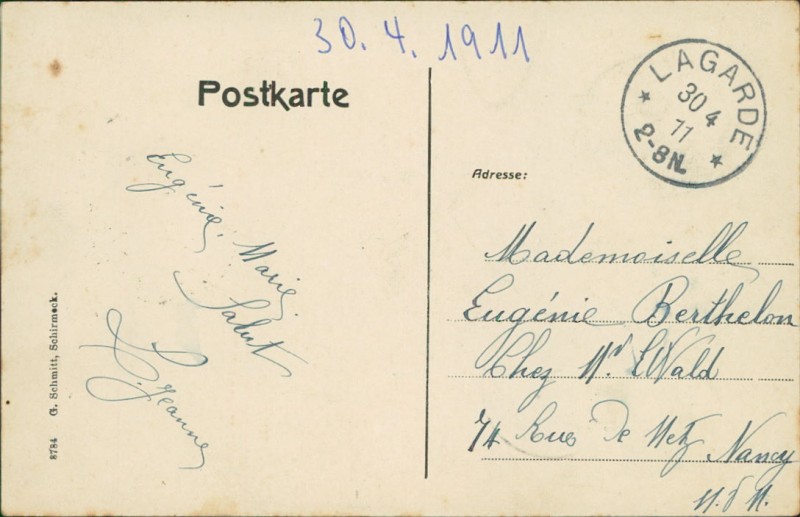 30. 4. 1911
Postkarte
LAGARDE
30 4
11
2-8N.
Adresse:
Eugénie. Marie.
Salut
Jeanne
Mademoiselle
Eugénie Berthelon
Chez Mr Wald
74 Rue de Metz Nancy
M. d M.
8784 G. Schmitt, Schirmeck.